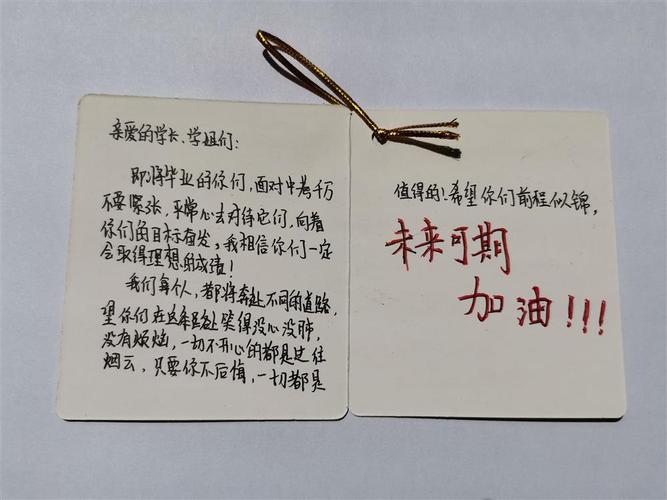 亲爱的学长、学姐们:
即将毕业的你们,面对中考千万
不要紧张,平常心去对待它们,向着
你们的目标奋发,我相信你们一定
会取得理想的成绩!
我们每个人,都将奔赴不同的道路,
望你们在这条路上笑得没心没肺,
没有烦恼,一切不开心的都是过往
烟云,只要你不后悔,一切都是
值得的!希望你们前程似锦,
未来可期
加油!!!